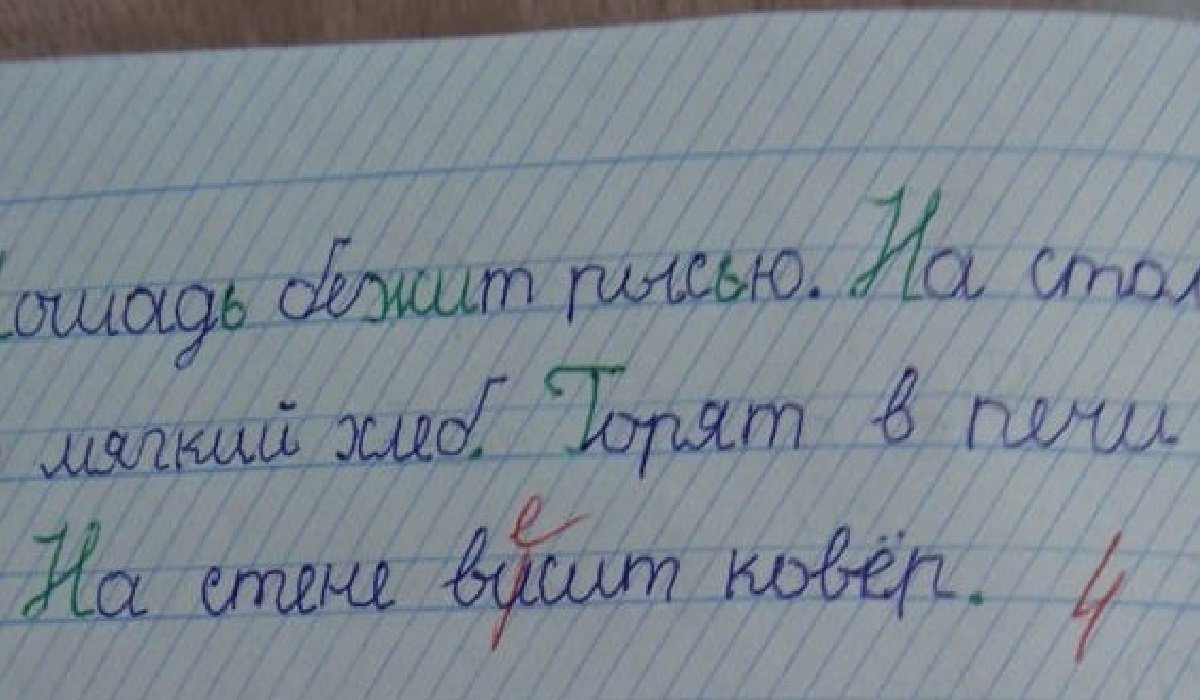 Лошадь бежит рысью. На стол
мягкий хлеб. Горят в печи
е
На стене висит ковёр. 4